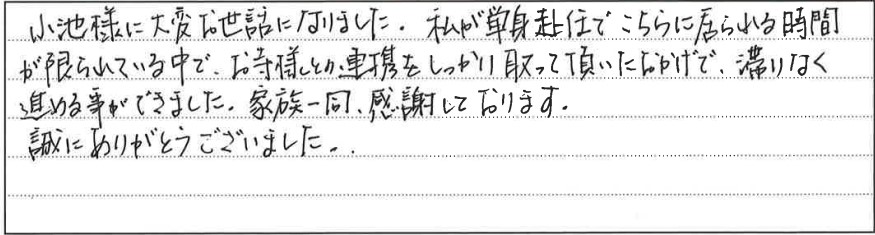 小池様に大変お世話になりました。私が単身赴任でこちらに居られる時間
が限られている中で、お寺様との連携をしっかり取って頂いたおかげで、滞りなく
進める事ができました。家族一同、感謝しております。
誠にありがとうございました。